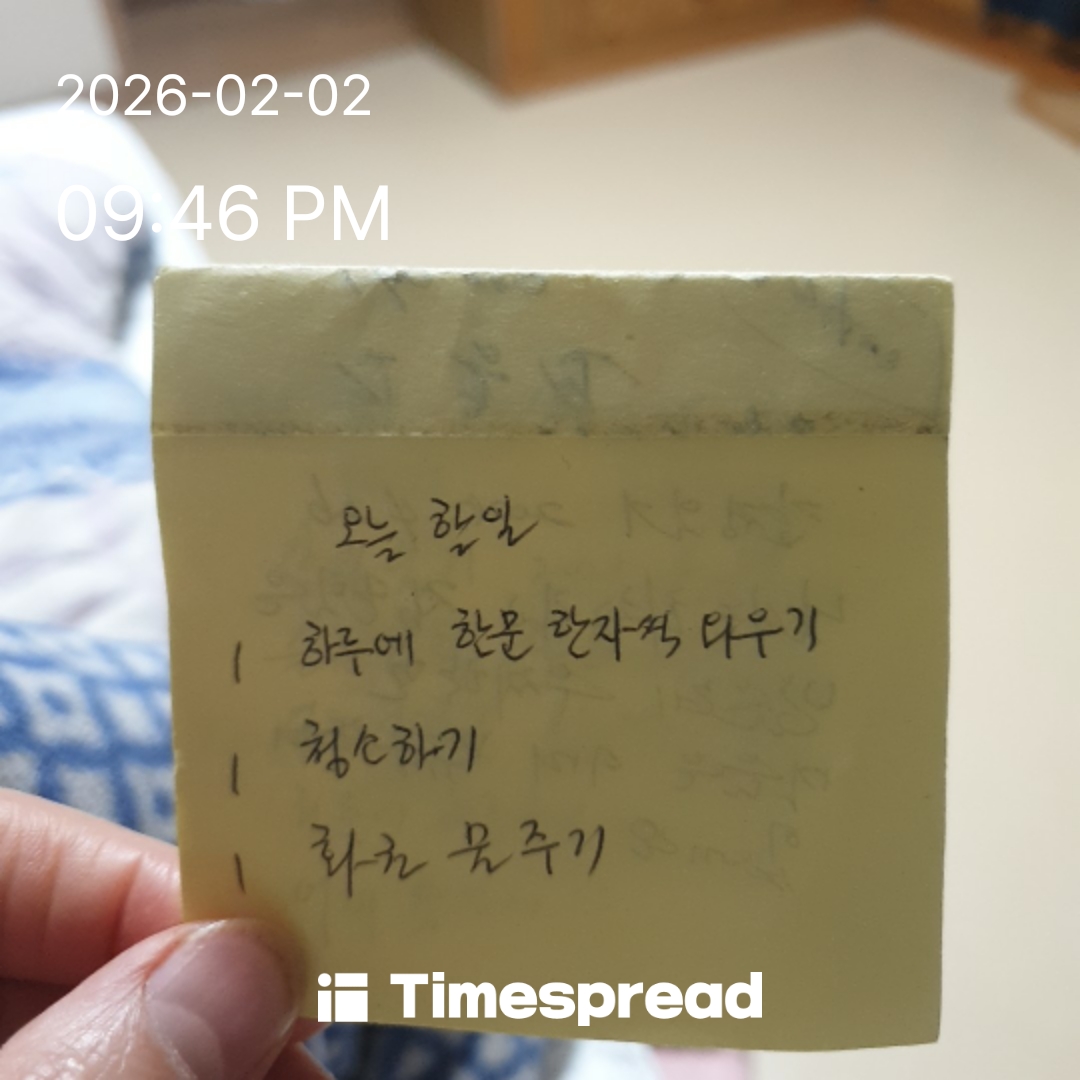 2026-02-02
09:46 PM
오늘 할일
1 하루에 한문 한자씩 외우기
1 청소하기
1 화분 물주기
Timespread